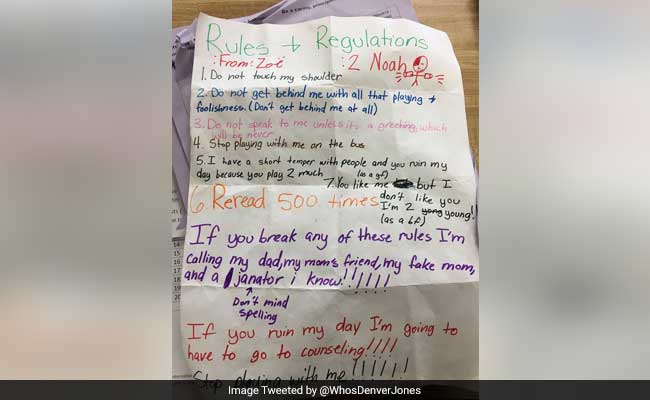 Rules + Regulations
:From: Zoë :2 Noah
1. Do not touch my shoulder
2. Do not get behind me with all that playing +
foolishness. (Don't get behind me at all)
3. Do not speak to me unless its a greeting, which
will be never
4. Stop playing with me on the bus
5. I have a short temper with people and you ruin my
day because you play 2 much
(as a gf)
7. You like me but I
don't like you
I'm 2 yong young!
(as a bf)
6. Reread 500 times
If you break any of these rules I'm
calling my dad, my mom's friend, my fake mom,
and a janator i know!!!!!!!
Don't mind
spelling
If you ruin my day I'm going to
have to go to counseling!!!!
Stop playing with me!!!!!!
Image Tweeted by @WhosDenverJones